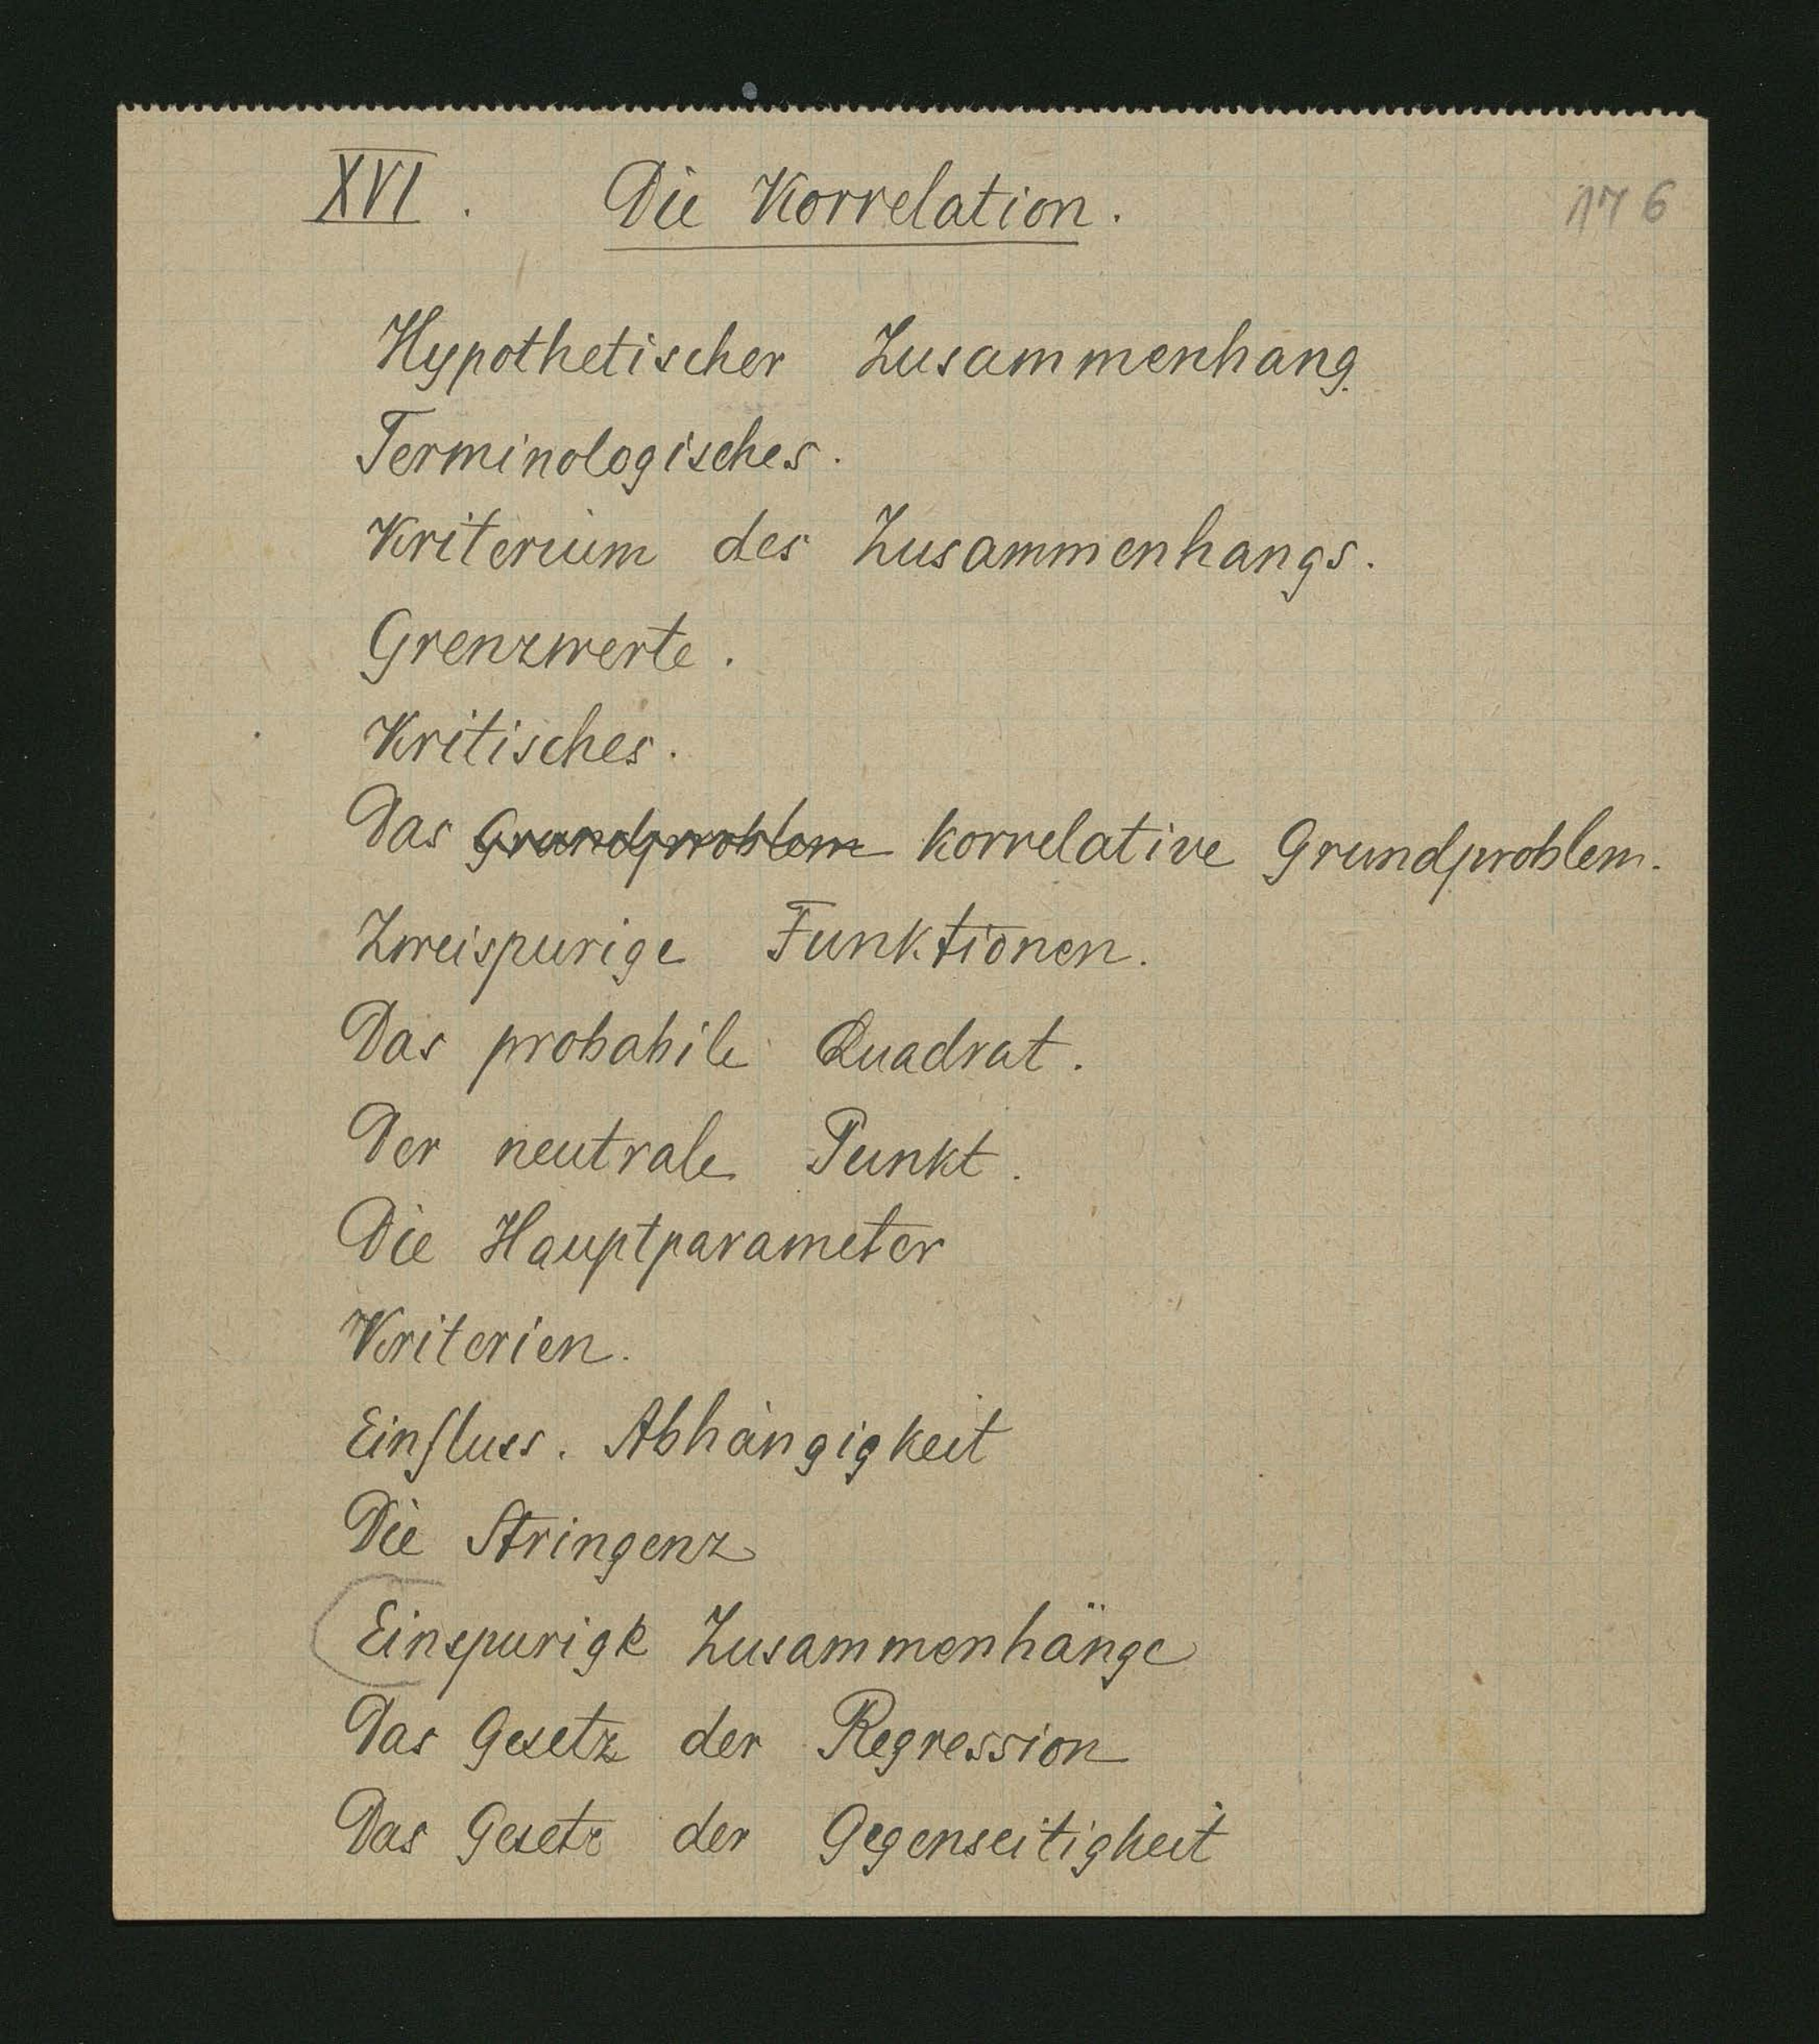 XVI. Die Korrelation. 176
Hypothetischer Zusammenhang.
Terminologisches.
Kriterium des Zusammenhangs.
Grenzwerte.
Kritisches.
Das Grundproblem korrelative Grundproblem.
Zweispurige Funktionen.
Das probabile Quadrat.
Der neutrale Punkt.
Die Hauptparameter
Kriterien.
Einfluss. Abhängigkeit
Die Stringenz
Einspurige Zusammenhänge
Das Gesetz der Regression
Das Gesetz der Gegenseitigkeit